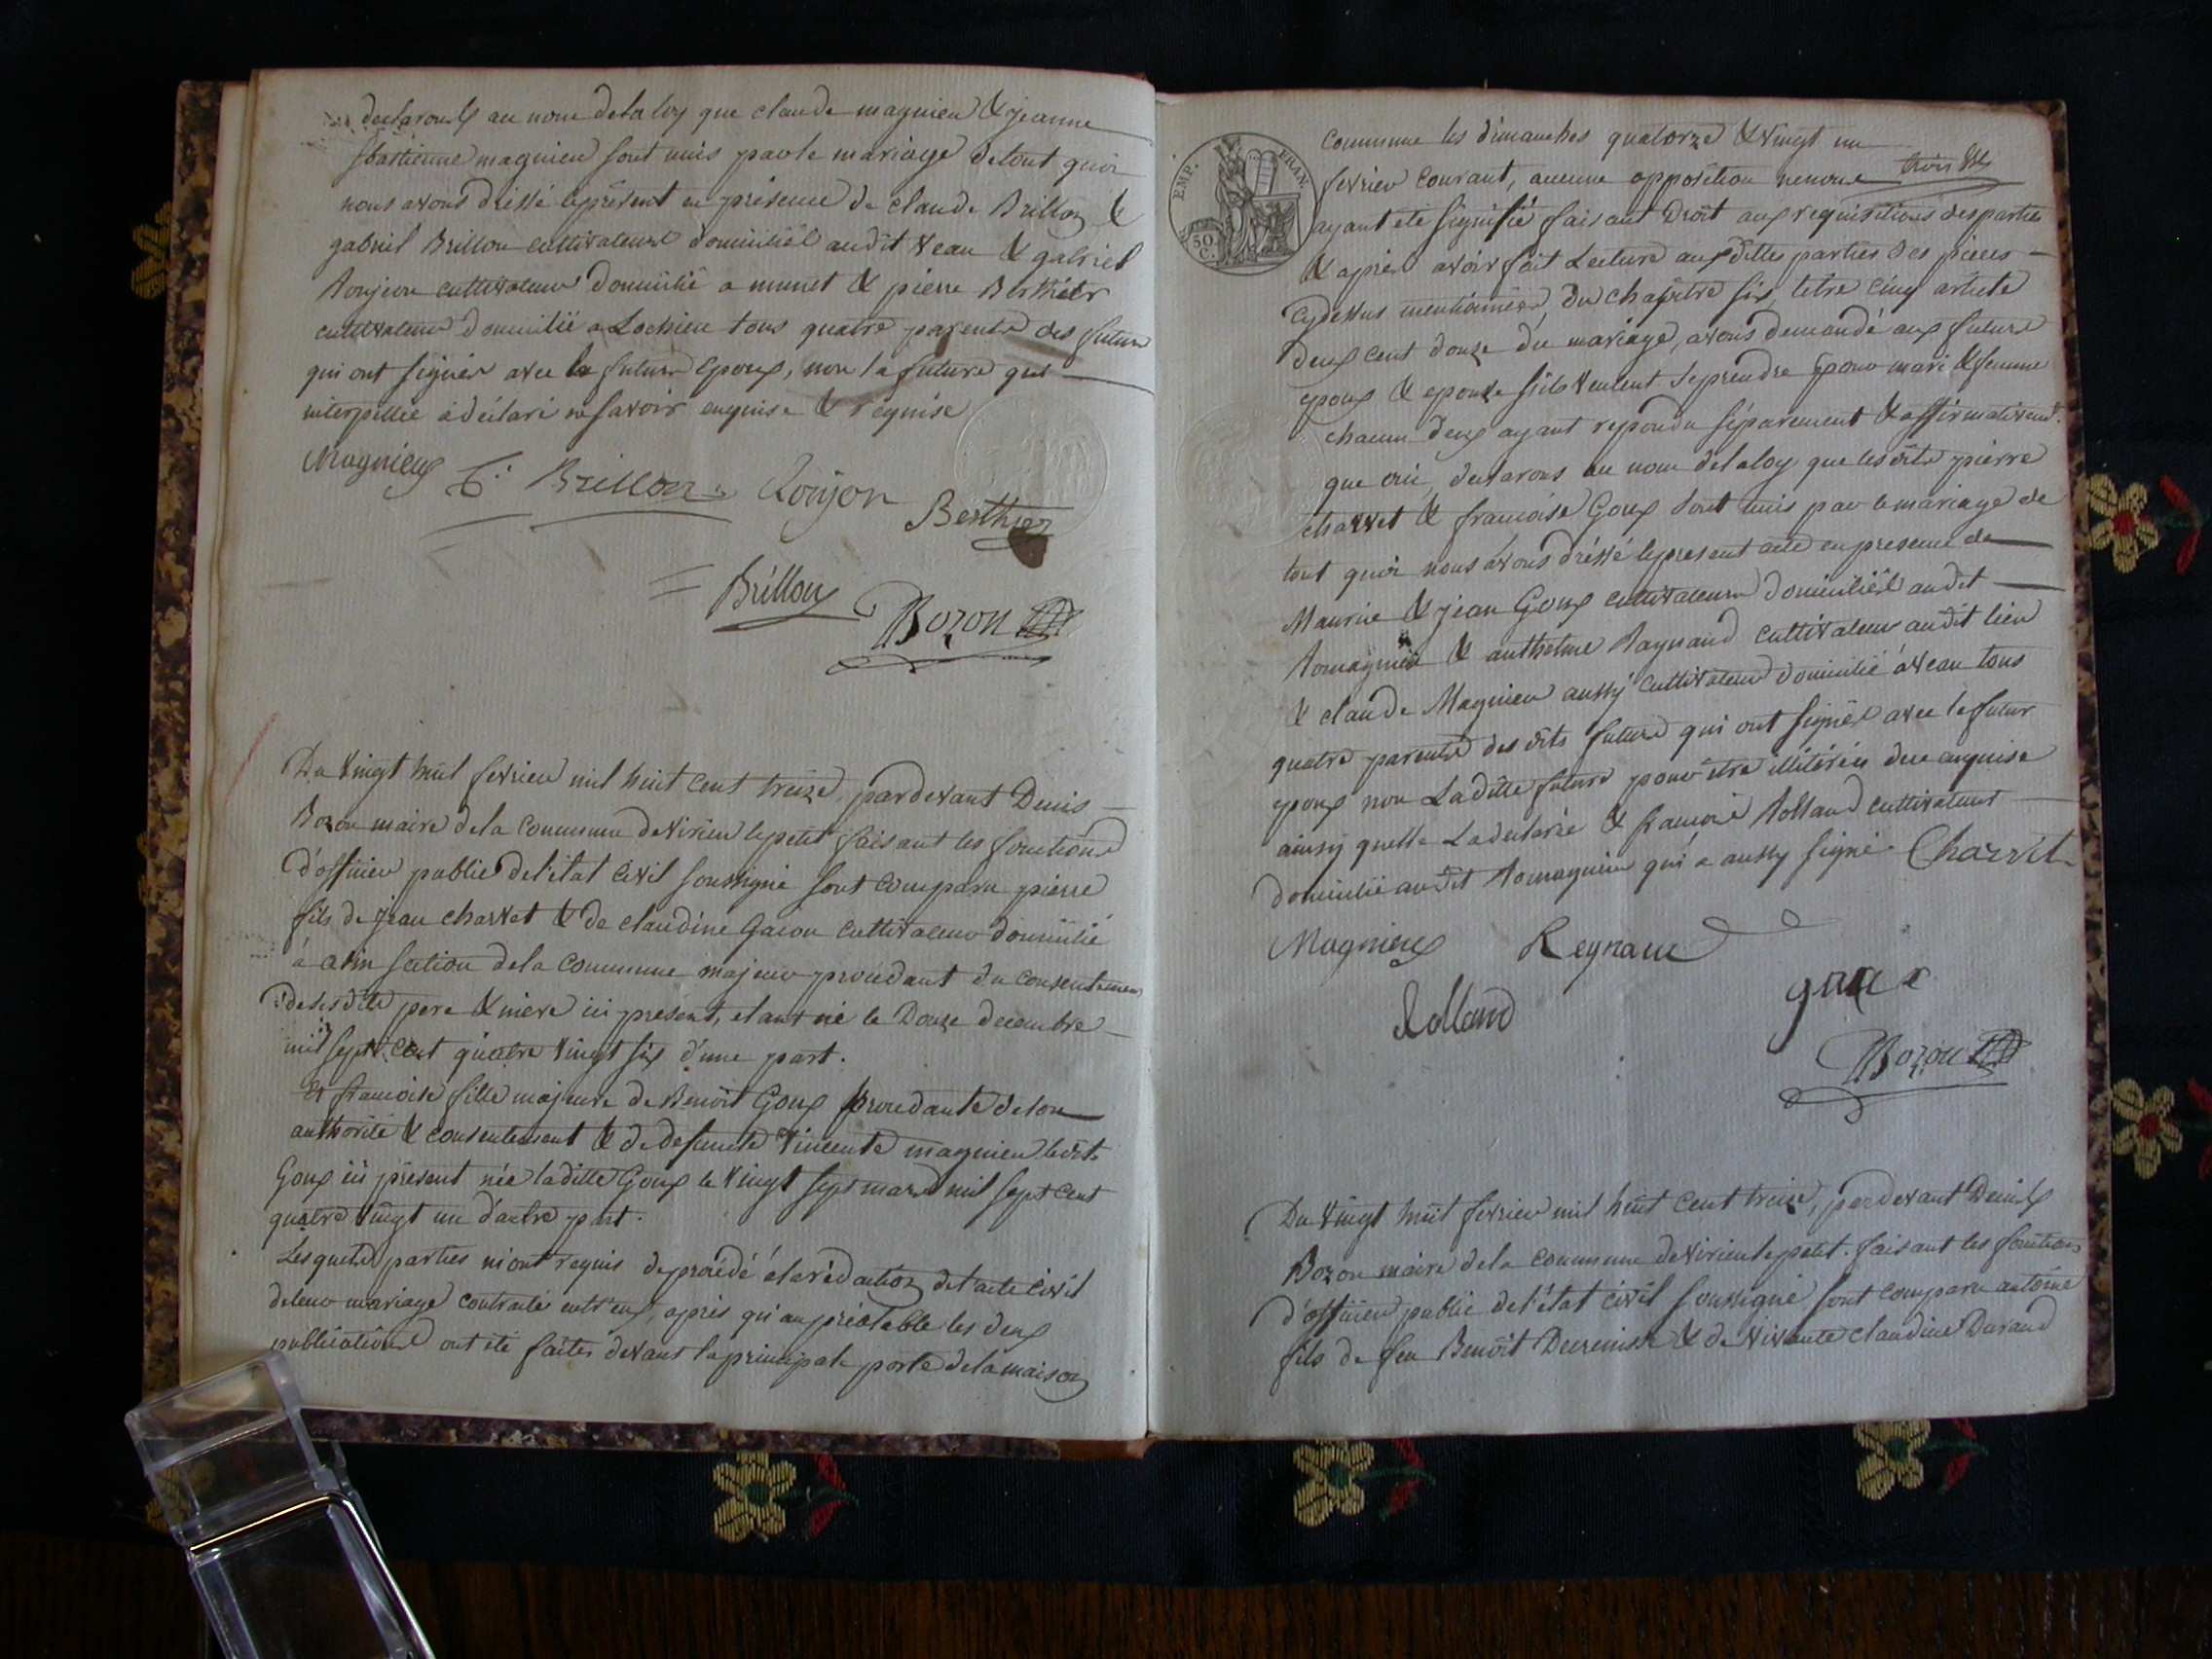 declarons au nom dela loy que claude magnieu & jeanne
sbastienne magnieu sont unis par le mariage de tout quoi
nous avons dréssé le présent en présence de claude Brillon &
gabriel Brillon cultivateurs domiciliés audit veau & gabriel
Roujon cultivateur domicilié a munet & pierre Berthier
cultivateur domicilié a Lochieu tous quatre parents des futurs
qui ont signés avec le futur epoux, non la future qui
interpellée a déclaré ne savoir enquise & requise
Magnieu C. Brillon Roujon
Berthier
Brillon
Bozon
Du vingt huit fevrier mil huit cent treize, pardevant Denis
Bozon maire dela commune de virieu le petit faisant les fonctions
d'officier public de l'état civil soussigné sont comparu pierre
fils de jean charvet & de claudine Gacon cultivateur domicilié
à avin section dela commune majeur procedant du consentement
de ses dits pere & mere ici présent, etant né le Douze decembre
mil sept cent quatre vingt six d'une part.
et francoise fille majeure de Benoit Goux procedante de son
authorité & consentement & de defuncte vincente magnieu ledit
Goux ici présent née laditte Goux le vingt sept mars mil sept cent
quatre vingt un d'autre part.
Lesquels parties m'ont requis de procédé a la rédaction de l'acte civil
de leur mariage contracté entr'eux, après qu'au préalable les deux
publications ont été faites devant la principale porte dela maison
EMP. FRAN.
50 C.
commune les dimanches quatorze & vingt un
fevrier courant, aucune opposition ne nous
ayant été signifié faisant Droit aux requisitions des parties
& aprés avoir fait Lecture aux dittes parties des pieces
cydessus mentionnées, du chapitre six, titre cinq article
deux cent douze du mariage, avons demandé aux futurs
epoux & epouse s'ils veulent se prendre pour mari & femme
chacun deux ayant repondu séparement & affirmativemt.
que oui, declarons au nom de la loy que lesdits pierre
charvet & francoise Goux sont unis par le mariage de
tout quoi nous avons dréssé le present acte en presence de
Maurice & jean Goux cultivateurs domiciliés audit
Romagnieu & anthelme Raynaud cultivateur audit lieu
& claude Magnieu aussy cultivateur domicilié à veau tous
quatre parents des dits futurs qui ont signés avec le futur
epoux non Laditte future pour être illiterée de ce enquise
ainsy quelle La declaré & francois Rolland cultivateur
domicilié audit Romagnieu qui a aussy signé. Charvet
Magnieu Regnaud
Rolland goux
Bozon
Du vingt huit fevrier mil huit cent treize, pardevant Denis
Bozon maire dela commune de virieu le petit faisant les fonctions
d'officier public de l'état civil soussigné sont comparu antoine
fils de feu Benoit Decremisse & de vivante claudine Durand